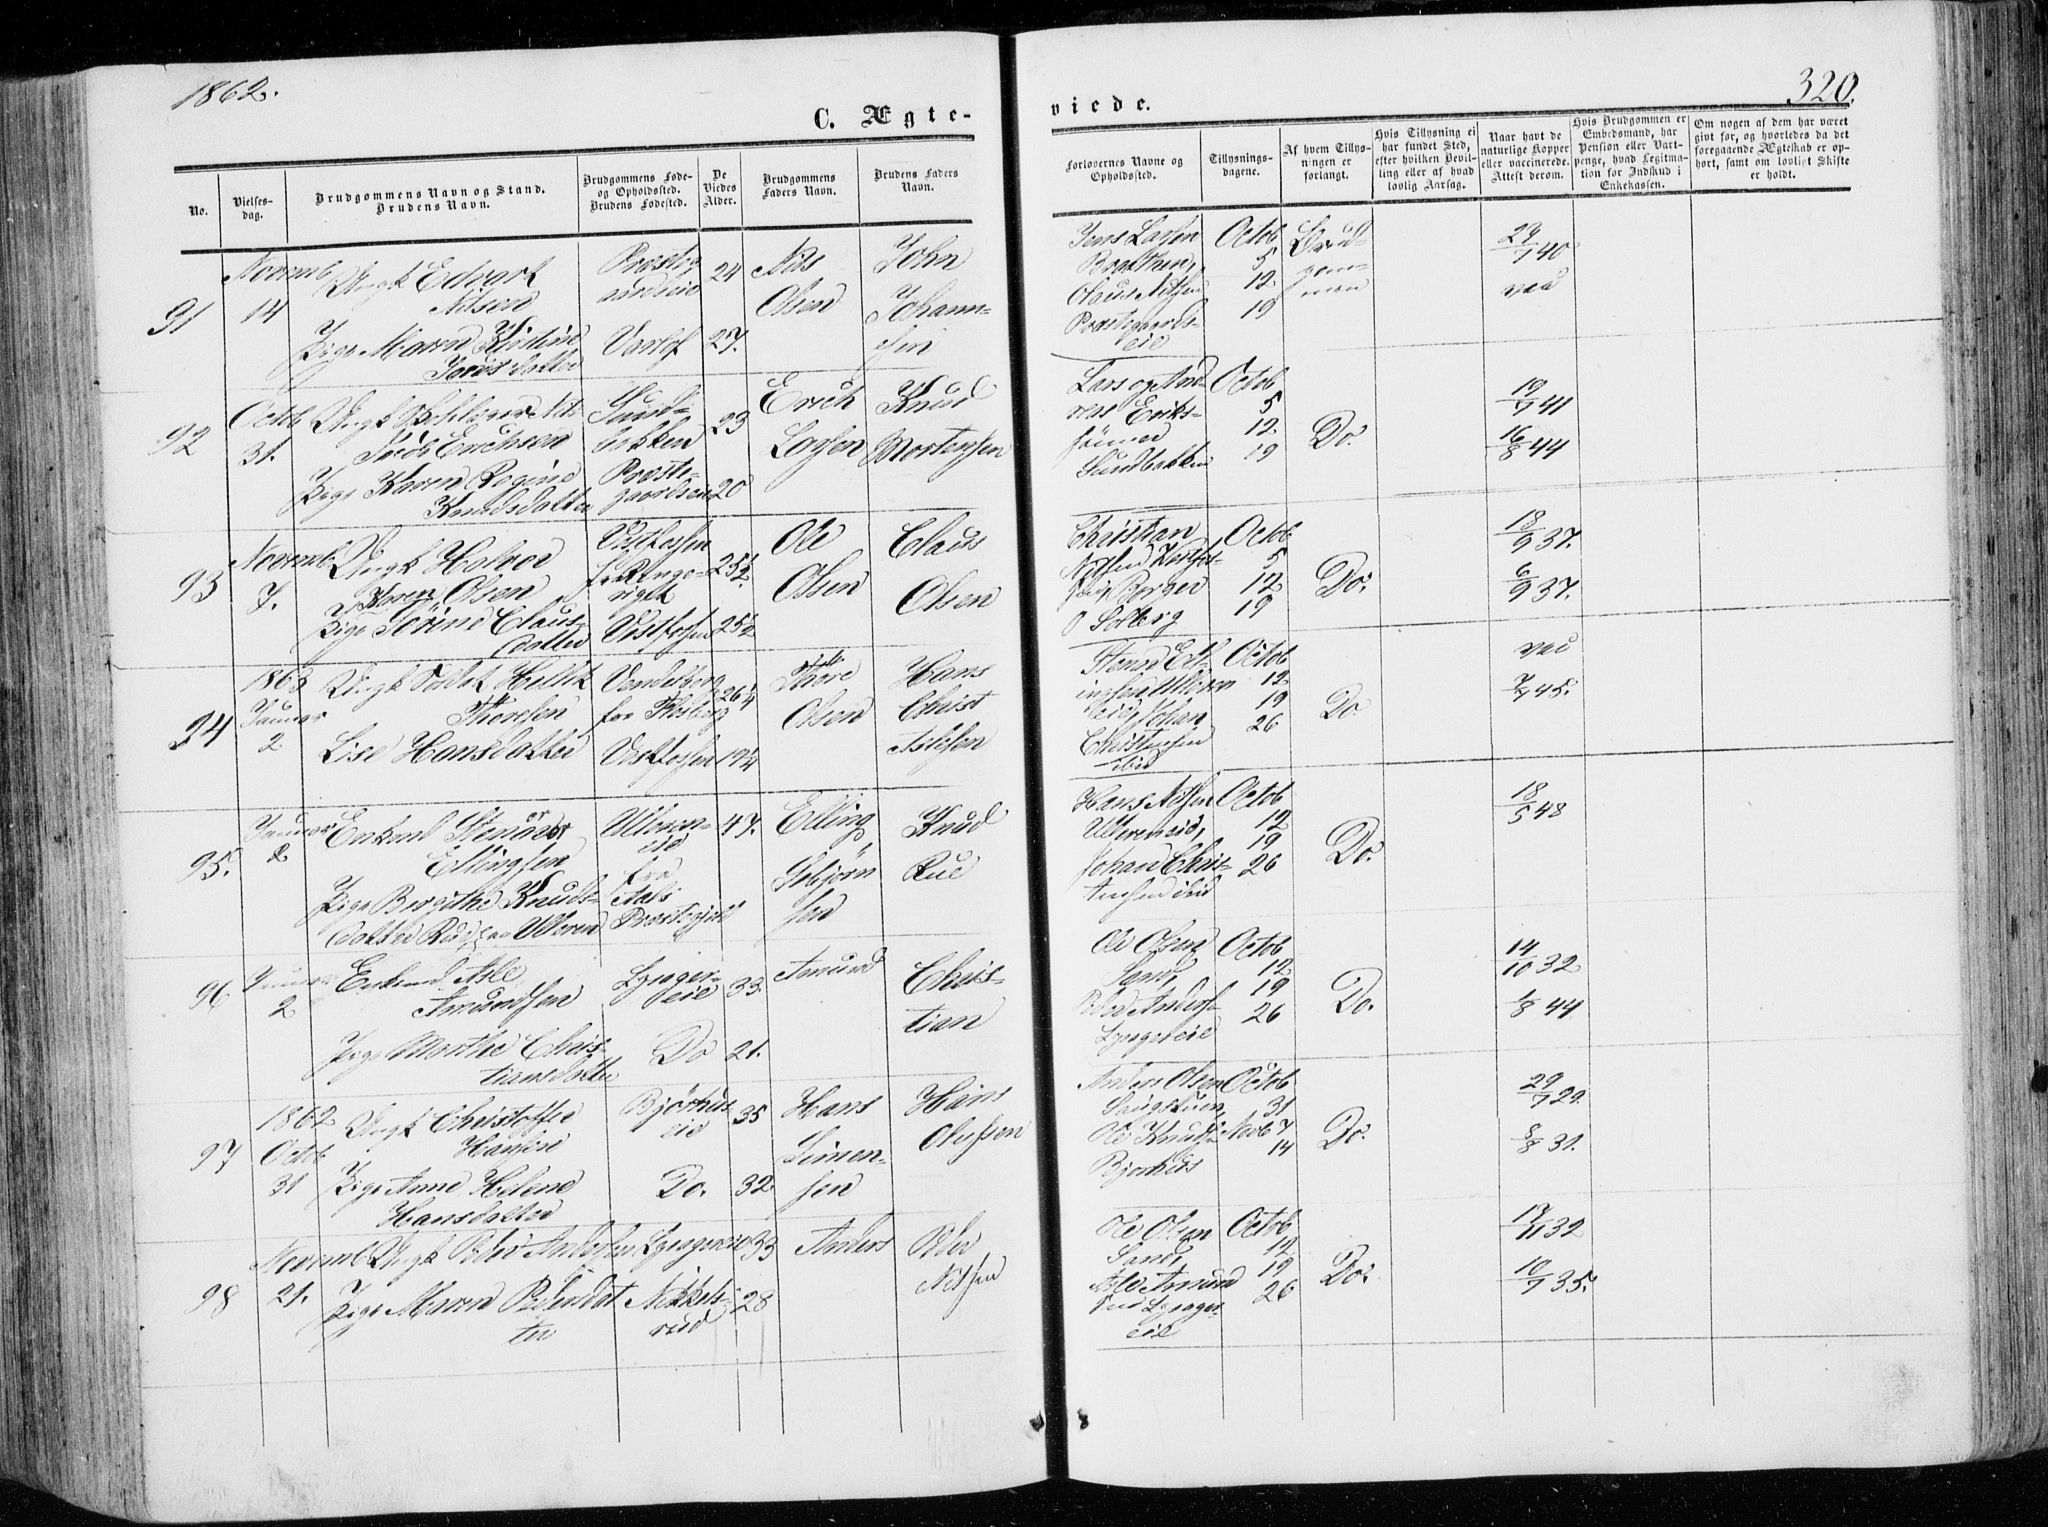 1862.
320.
C. Ægte-
viede.
No.
Vielses-
dag.
Brudgommens Navn og Stand.
Brudens Navn.
Brudgommens Føde-
og Opholdssted.
Brudens Fødested.
De
Viedes
Alder.
Brudgommens
Faders Navn.
Brudens Faders
Navn.
Forlovernes Navne og
Opholdssted.
Tillysnings-
dagene.
Af hvem Tillys-
ningen er
forlangt.
Hvis Tillysning ei
har fundet Sted,
efter hvilken Bevil-
ling eller af hvad
lovlig Aarsag.
Naar havt de
naturlige Kopper
eller vaccinerede.
Attest derom.
Hvis Brudgommen er
Embedsmand, har
Pension eller Vart-
penge, hvad Legitima-
tion for Indskud i
Enkekassen.
Om nogen af dem har været
givt før, og hvorledes da det
foregaaende Ægteskab er op-
hørt, samt om lovligt Skifte
er holdt.
91
Novemb
14
Ungk Edvart
Nilsen
Pige Maren
Præsteg
aardseie
24
27.
Nils
Olsen
John
Johann-
sen
Jens Larsen
Braathen,
Olaus Nilsen
Præstegaards-
eie
Octob
5
12
19
Brud-
gom-
men
29/7 40
vac
92
Octob
31.
Ungk
Erichsen
Pige Karen Regine
Knudsdatter
Sund-
bakken
Præste-
gaardseie
23
20
Erich
Larsen
Knud
Mortensen
Lars og And-
reas Eriks-
sønner
Sundbakken
Octob
5
12.
19
Do.
19/7 41
16/8 44
93
Novemb
7.
Ungk Halvor
Olsen
Karen
Pige Sørine Claus-
datter
Vestfossen
Vestfossen
25½.
25½
Ole
Olsen
Claus
Olsen
Christian
Borger
Solberg
Octob
5
12
19
Do.
18/9 37.
6/9 37.
94
1863
Januar
2
Ungk Hellik
Thoresen
Lise Hansdatter
Vestfossen
26¼
19¼
Thore
Olsen
Hans
Christ
Johan
Christensen
ibid
Octob
12
19
26
Do
vac
7/7 45.
95.
Januar
2
Enkem
Ellingsen
Pige Bergithe Knuds-
datter Rud fra Ulleren
Ulleren-
eie
fra
Aals
Præstegjeld
47.
Elling
Knud
Rue
Hans Nilsen
Ullereneie,
Johan Chris-
tensen ibid
Octob
12
19
26
Do.
18/5 48
96
Januar
2
Enkem Asle
Amundsen
Pige Marthe Chris-
tiansdatter
eie
Do
33.
21.
Amund
Chris-
tian
Ole Olsen
Sand,
Octob
12
19
26
Do.
14/10 32
1/8 44
97
1862
Octob
31
Ungk Christoffer
Hansen
Pige Anne Helene
Hansdatter
Bjørhus-
eie
Do.
35
32
Hans
Simen-
sen
Hans
Olufsen
Anders Olsen
Ole
Bjørhus
Octob
31
Novb 7
14
Do.
29/7 29.
8/8 31.
98
Novemb
21.
Ungk Peder Andersen
Pige Maren Pedersdat
ter
Nikkels-
rud
33
28
Anders
Peder
Nilsen
Ole Olsen
Sand,
Asle Amund
eie
Octob
12
19
26
Do.
17/11 32
10/7 35.